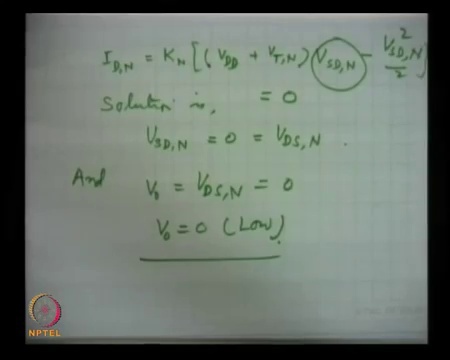 I_{D,N} = K_N [(V_{DD} + V_{T,N}) V_{SD,N} - V_{SD,N}^2/2]
Solution is, = 0
V_{SD,N} = 0 = V_{DS,N}.
And V_0 = V_{DS,N} = 0
V_0 = 0 (Low).
NPTEL